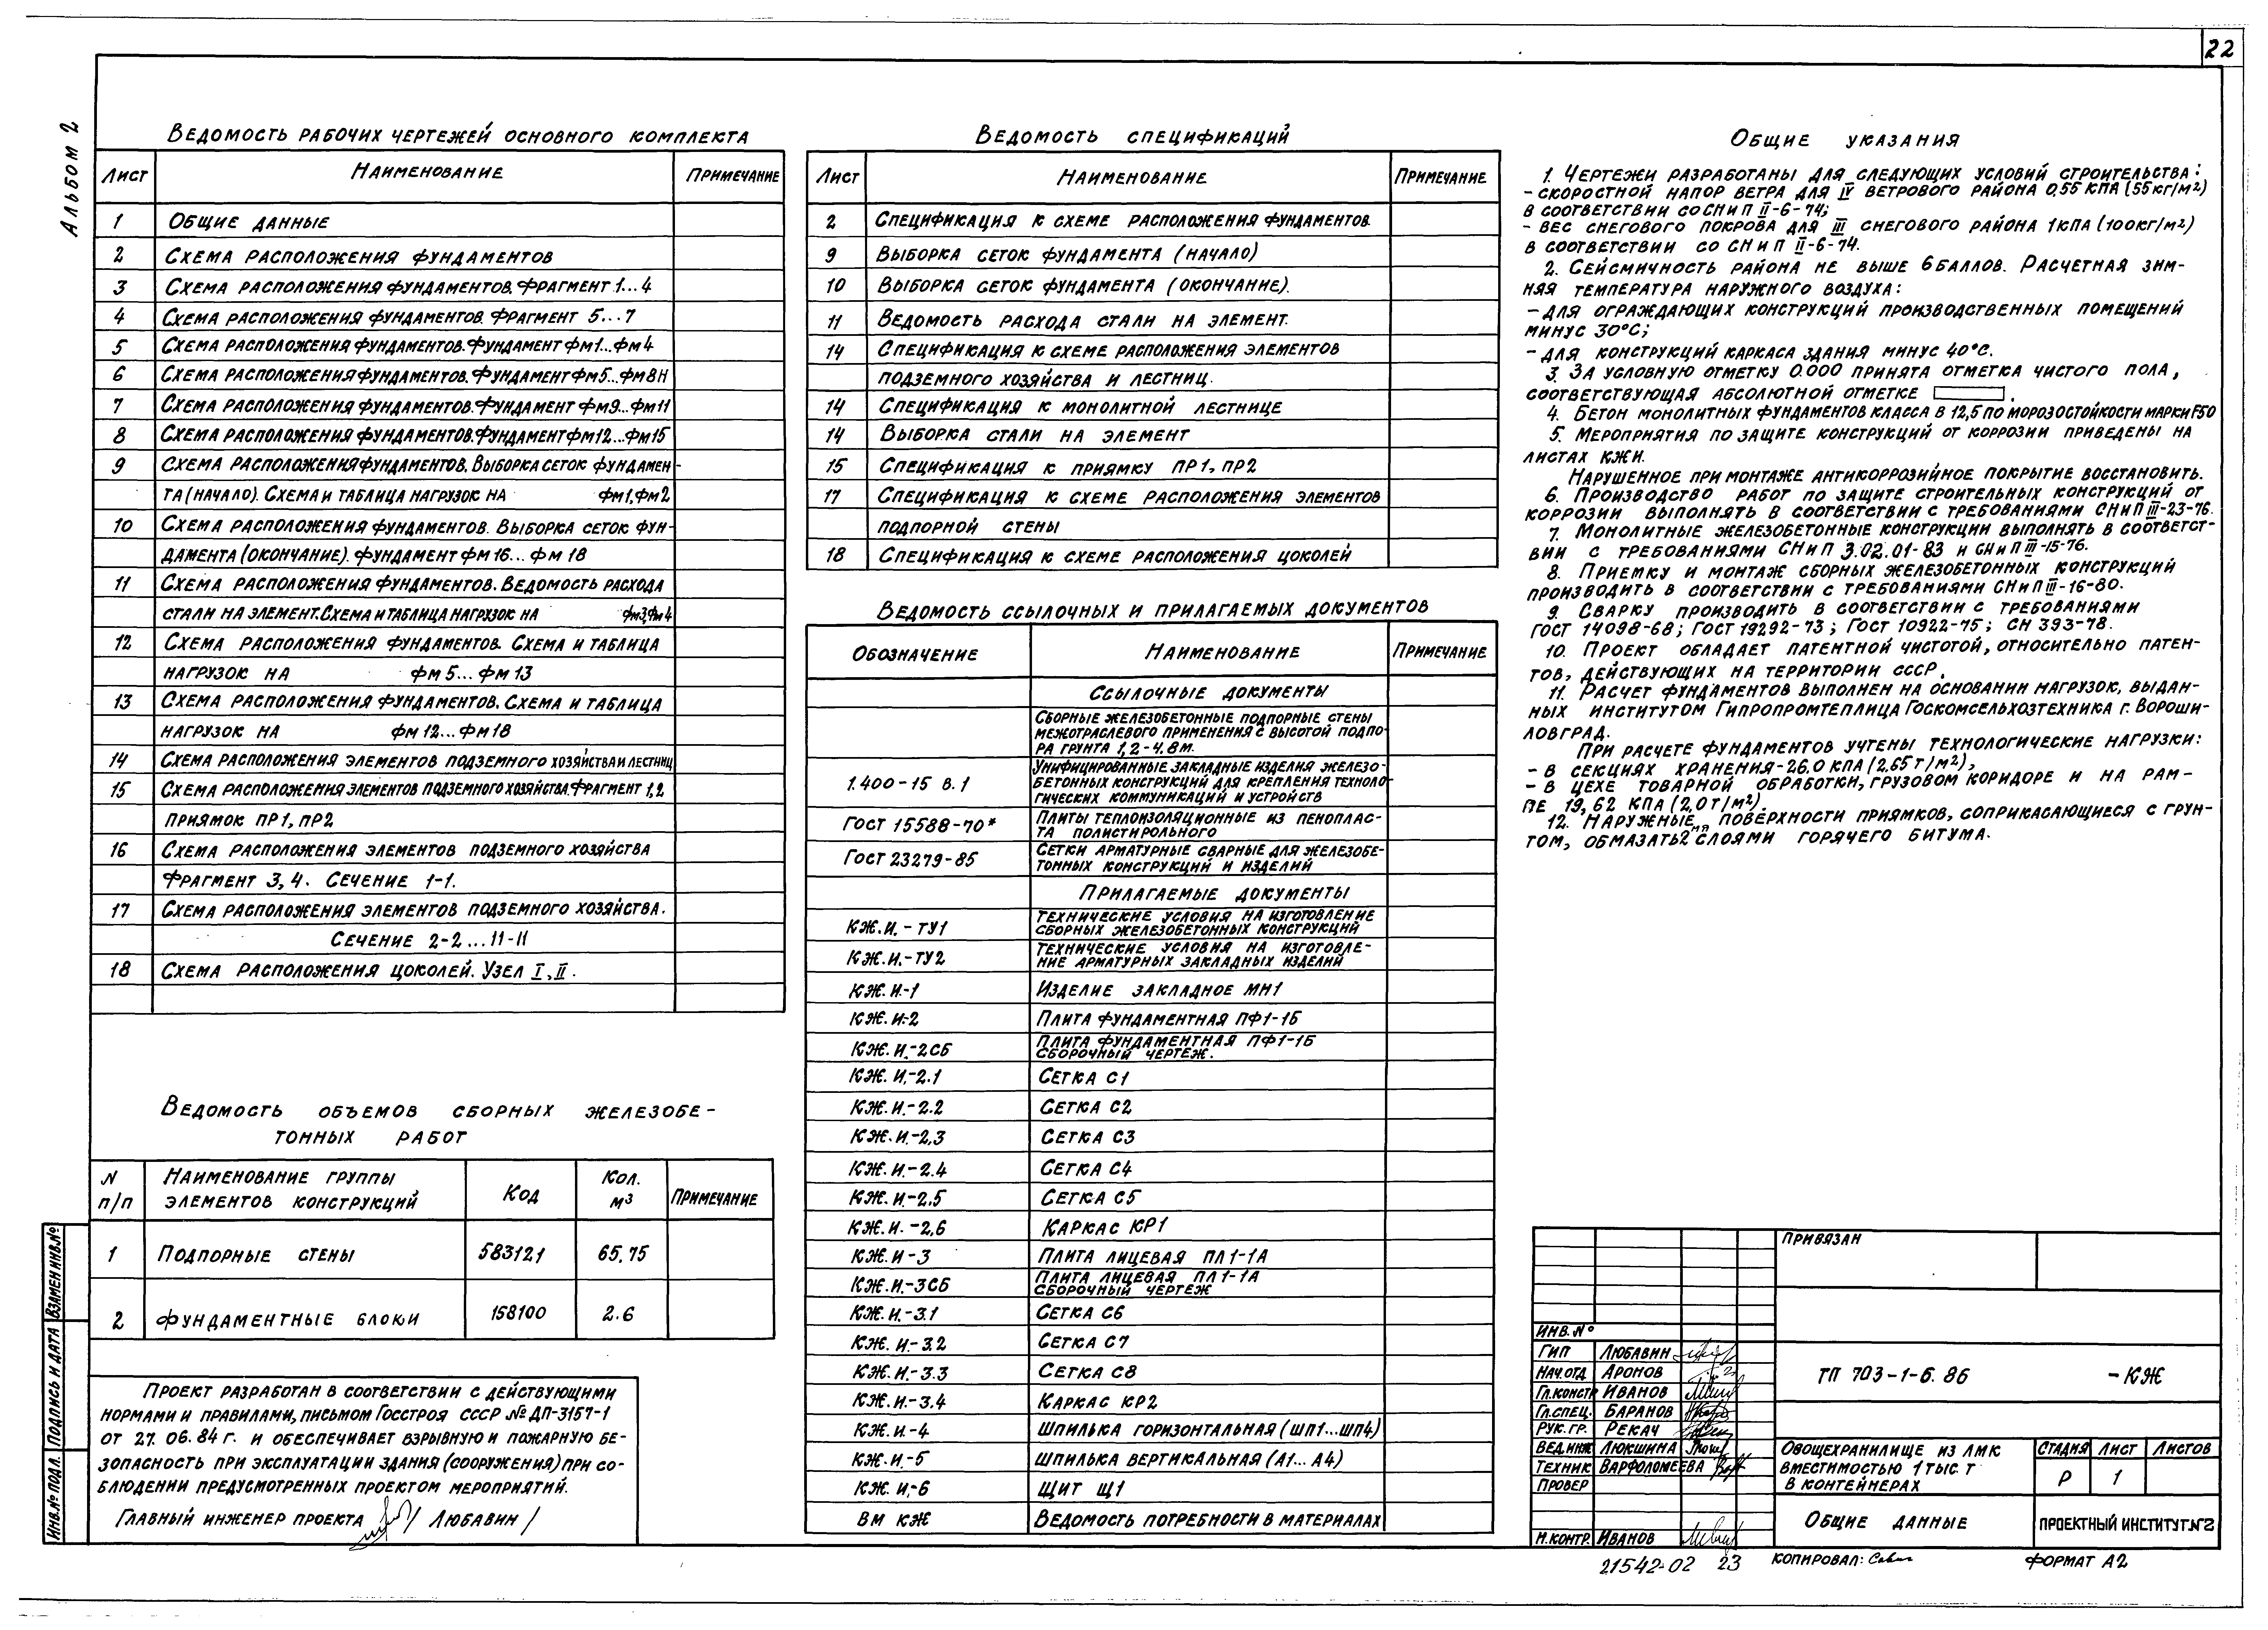 22
Альбом 2
Ведомость рабочих чертежей основного комплекта
Лист Наименование Примечание
1 Общие данные
2 Схема расположения фундаментов
3 Схема расположения фундаментов. Фрагмент 1...4
4 Схема расположения фундаментов. Фрагмент 5...7
5 Схема расположения фундаментов. Фундамент Фм1...Фм4
6 Схема расположения фундаментов. Фундамент Фм5...Фм8Н
7 Схема расположения фундаментов. Фундамент Фм9...Фм11
8 Схема расположения фундаментов. Фундамент Фм12...Фм15
9 Схема расположения фундаментов. Выборка сеток фундамен-
та (начало). Схема и таблица нагрузок на Фм1, Фм2
10 Схема расположения фундаментов. Выборка сеток фун-
дамента (окончание). Фундамент Фм16...Фм18
11 Схема расположения фундаментов. Ведомость расхода
стали на элемент. Схема и таблица нагрузок на Фм3, Фм4
12 Схема расположения фундаментов. Схема и таблица
нагрузок на Фм5...Фм13
13 Схема расположения фундаментов. Схема и таблица
нагрузок на Фм12...Фм18
14 Схема расположения элементов подземного хозяйства и лестниц
15 Схема расположения элементов подземного хозяйства. Фрагмент 1,2,
приямок ПР1, ПР2
16 Схема расположения элементов подземного хозяйства
Фрагмент 3,4. Сечение 1-1.
17 Схема расположения элементов подземного хозяйства.
Сечение 2-2...11-11
18 Схема расположения цоколей. Узел I, II.
Ведомость объемов сборных железобе-
тонных работ
N п/п Наименование группы элементов конструкций Код Кол. м3 Примечание
1 Подпорные стены 583121 65.75
2 Фундаментные блоки 158100 2.6
Проект разработан в соответствии с действующими
нормами и правилами, письмом Госстроя СССР № ДП-3157-1
от 27.06.84 г. и обеспечивает взрывную и пожарную бе-
зопасность при эксплуатации здания (сооружения) при со-
блюдении предусмотренных проектом мероприятий.
Главный инженер проекта / Любавин /
Инв.№ подл. Подпись и дата Взамен инв.№
Ведомость спецификаций
Лист Наименование Примечание
2 Спецификация к схеме расположения фундаментов.
9 Выборка сеток фундамента (начало)
10 Выборка сеток фундамента (окончание).
11 Ведомость расхода стали на элемент.
14 Спецификация к схеме расположения элементов
подземного хозяйства и лестниц.
14 Спецификация к монолитной лестнице
14 Выборка стали на элемент
15 Спецификация к приямку ПР1, ПР2
17 Спецификация к схеме расположения элементов
подпорной стены
18 Спецификация к схеме расположения цоколей
Ведомость ссылочных и прилагаемых документов
Обозначение Наименование Примечание
Ссылочные документы
Сборные железобетонные подпорные стены
межотраслевого применения с высотой подпо-
ра грунта 1,2-4.8м.
Унифицированные закладные изделия железо-
1.400-15 В.1 бетонных конструкций для крепления техноло-
гических коммуникаций и устройств
Гост 15588-70* Плиты теплоизоляционные из пеноплас-
та полистирольного
Гост 23279-85 Сетки арматурные сварные для железобе-
тонных конструкций и изделий
Прилагаемые документы
КЖ.И.-ТУ1 Технические условия на изготовление
сборных железобетонных конструкций
КЖ.И.-ТУ2 Технические условия на изготовле-
ние арматурных закладных изделий
КЖ.И-1 Изделие закладное МН1
КЖ.И-2 Плита фундаментная ПФ1-1Б
КЖ.И.-2СБ Плита фундаментная ПФ1-1Б
сборочный чертеж.
КЖ.И.-2.1 Сетка С1
КЖ.И.-2.2 Сетка С2
КЖ.И.-2,3 Сетка С3
КЖ.И.-2.4 Сетка С4
КЖ.И-2.5 Сетка С5
КЖ.И.-2,6 Каркас КР1
КЖ.И-3 Плита лицевая ПЛ1-1А
КЖ.И.-3СБ Плита лицевая ПЛ1-1А
сборочный чертеж
КЖ.И.-3.1 Сетка С6
КЖ.И.-3.2 Сетка С7
КЖ.И.-3.3 Сетка С8
КЖ.И.-3.4 Каркас КР2
КЖ.И.-4 Шпилька горизонтальная (ШП1...ШП4)
КЖ.И.-5 Шпилька вертикальная (А1...А4)
КЖ.И-6 Щит Щ1
ВМ КЖ Ведомость потребности в материалах
Общие указания
1. Чертежи разработаны для следующих условий строительства:
- скоростной напор ветра для IV ветрового района 0,55 кПа (55кг/м2)
в соответствии со СНиП II-6-74;
- вес снегового покрова для III снегового района 1кПа (100кг/м2)
в соответствии со СНиП II-6-74.
2. Сейсмичность района не выше 6 баллов. Расчетная зим-
няя температура наружного воздуха:
- для ограждающих конструкций производственных помещений
минус 30°С;
- для конструкций каркаса здания минус 40°С.
3. За условную отметку 0.000 принята отметка чистого пола,
соответствующая абсолютной отметке .
4. Бетон монолитных фундаментов класса В 12,5 по морозостойкости марки F50
5. Мероприятия по защите конструкций от коррозии приведены на
листах КЖИ.
Нарушенное при монтаже антикоррозийное покрытие восстановить.
6. Производство работ по защите строительных конструкций от
коррозии выполнять в соответствии с требованиями СНиП III-23-76.
7. Монолитные железобетонные конструкции выполнять в соответст-
вии с требованиями СНиП 3.02.01-83 и СНиП III-15-76.
8. Приемку и монтаж сборных железобетонных конструкций
производить в соответствии с требованиями СНиП III-16-80.
9. Сварку производить в соответствии с требованиями
Гост 14098-68; Гост 19292-73; Гост 10922-75; СН 393-78.
10. Проект обладает патентной чистотой, относительно патен-
тов, действующих на территории СССР.
11. Расчет фундаментов выполнен на основании нагрузок, выдан-
ных институтом Гипропромтеплица Госкомсельхозтехника г. Вороши-
ловград.
При расчете фундаментов учтены технологические нагрузки:
- в секциях хранения-26.0 кПа (2.65т/м2),
- в цехе товарной обработки, грузовом коридоре и на рам-
пе 19,62 кПа (2,0т/м2).
12. Наружные поверхности приямков, соприкасающиеся с грун-
том, обмазать 2мя слоями горячего битума.
Привязан
Инв.№
ГИП Любавин
Нач.отд Аронов
Гл.констр Иванов
Гл.спец. Баранов
Рук.гр. Рекач
Вед.инж Люкшина
Техник Варфоломеева
Провер
Н.контр. Иванов
ТП 703-1-6.86 -КЖ
Овощехранилище из ЛМК
вместимостью 1 тыс. т
в контейнерах
Стадия Лист Листов
Р 1
Общие данные
Проектный институт №2
21542-02 23
Копировал:
Формат А2